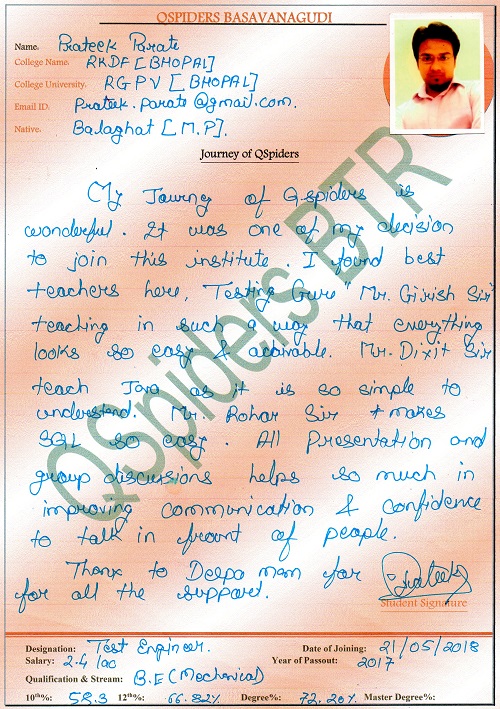 QSPIDERS BASAVANAGUDI
Name. Prateek Parate
College Name. RKDF [BHOPAL]
College University. RGPV [BHOPAL]
Email ID. Prateek.parate@gmail.com.
Native. Balaghat [M.P].
Journey of QSpiders
My Journey of Qspiders is
wonderful. It was one of my decision
to join this institute. I found best
teachers here, Testing Guru "Mr. Girish Sir"
teaching in such a way that everything
looks so easy & adorable. Mr. Dixit Sir
teach Java as it is so simple to
understand. Mr. Rohan Sir makes
SQL so easy. All Presentation and
group discussions helps so much in
improving communication & confidence
to talk in frount of people.
Thank to Deepa mam for
for all the support.
Prateek
Student Signature
QSpiders BTR
Designation: Test Engineer. Date of Joining: 21/05/2018
Salary: 2.4 Year of Passout: 2017
Qualification & Stream: B.E (Mechanical)
10th%: 58.3 12th%: 66.82% Degree%: 72.20% Master Degree%: